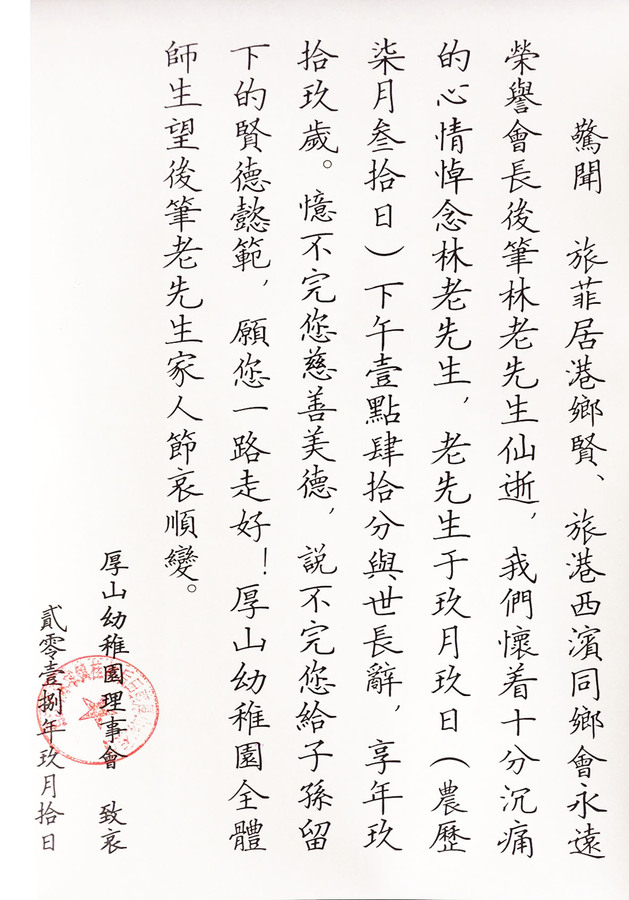 驚聞　旅菲居港鄉賢、旅港西濱同鄉會永遠
榮譽會長後筆林老先生仙逝，我們懷着十分沉痛
的心情悼念林老先生，老先生于玖月玖日（農歷
柒月叁拾日）下午壹點肆拾分與世長辭，享年玖
拾玖歲。憶不完您慈善美德，説不完您給子孫留
下的賢德懿範，願您一路走好！厚山幼稚園全體
師生望後筆老先生家人節哀順變。
厚山幼稚園理事會　致哀
貳零壹捌年玖月拾日